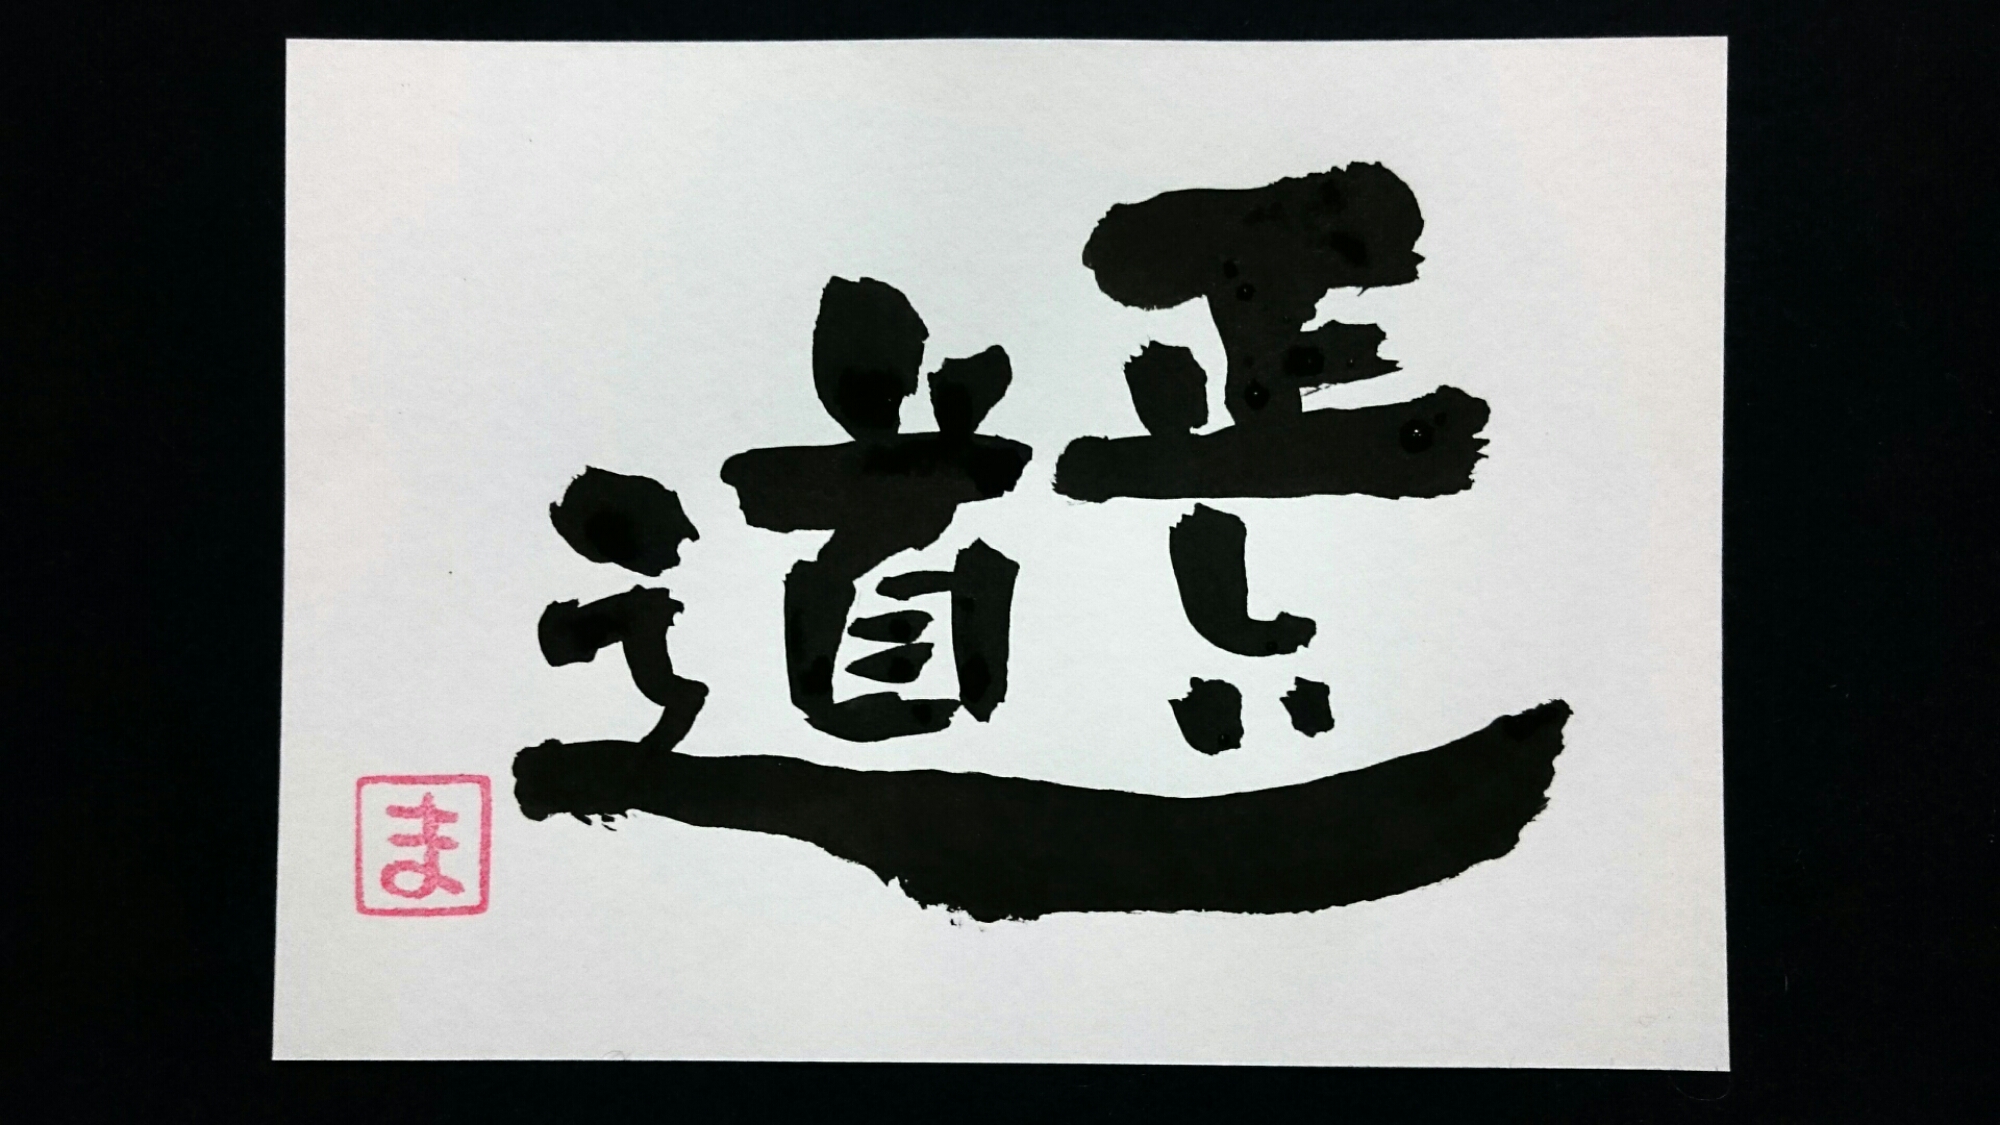 正しい道
ま